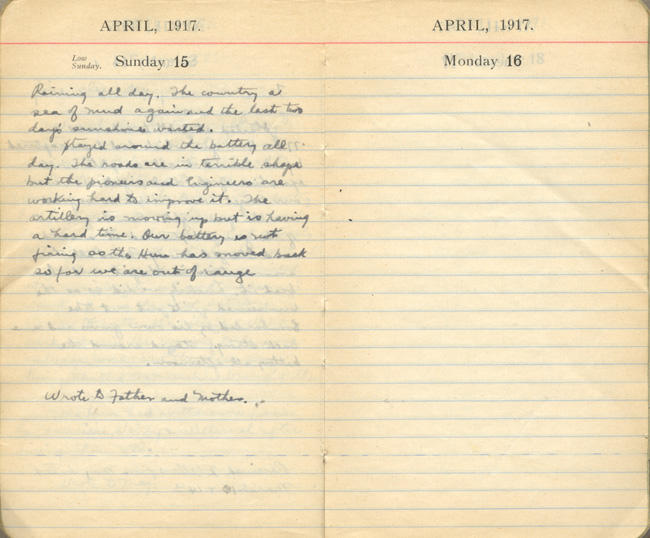 APRIL, 1917.
Low
Sunday. Sunday 15
Raining all day. The country a
sea of mud again and the last two
day's sunshine wasted.
Stayed around the battery all
day. The roads are in terrible shape
but the pioneers and Engineers are
working hard to improve it. The
artillery is moving up but is having
a hard time. Our battery is not
firing as the Hun has moved back
so far we are out of range
Wrote to Father and Mother.
APRIL, 1917.
Monday 16